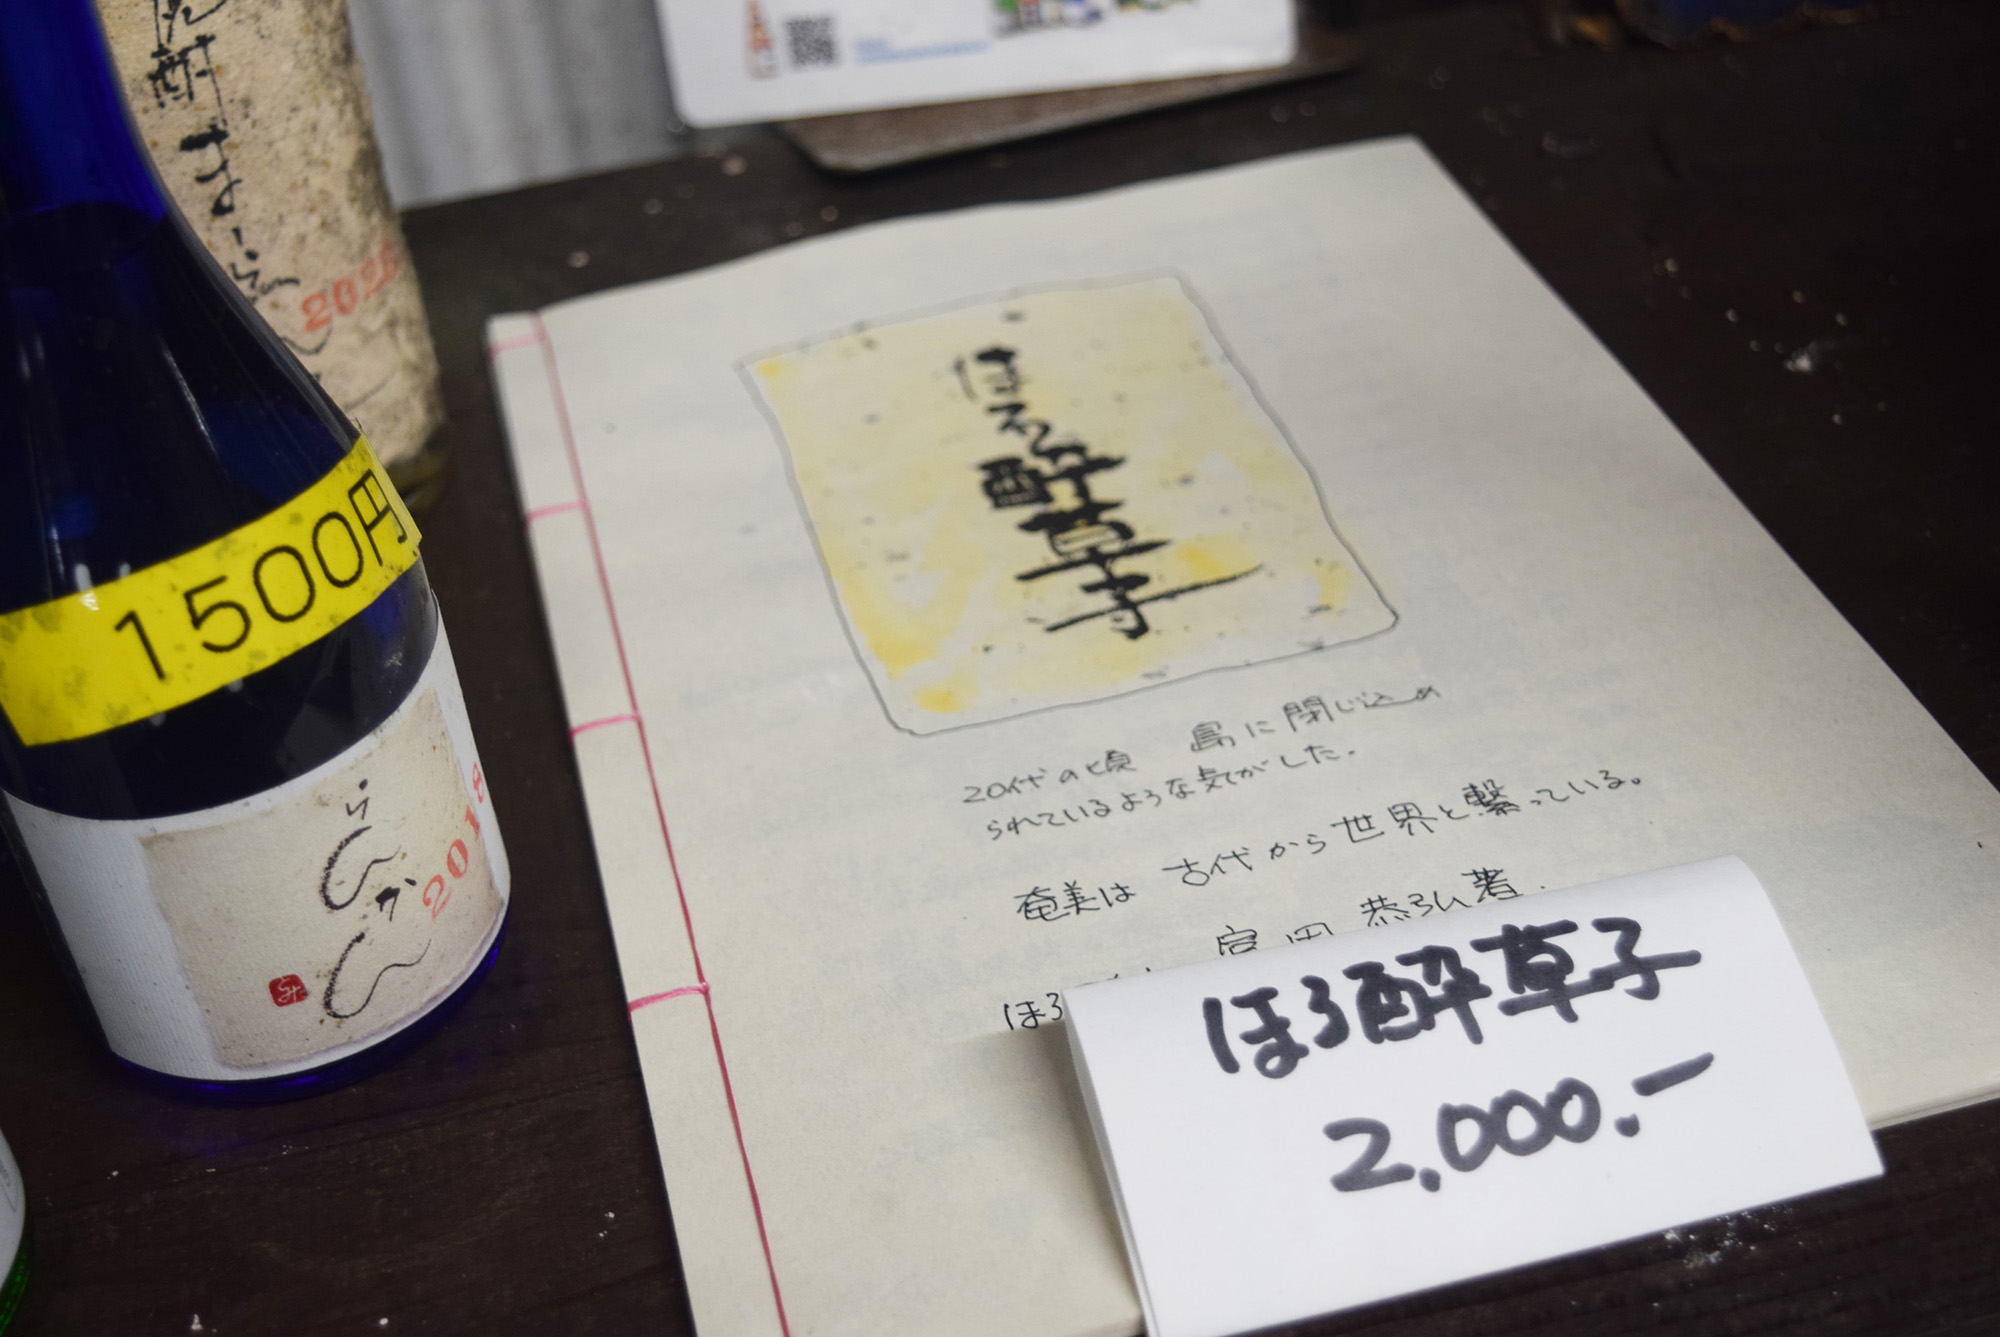 酎
2022
1500円
らんかん
2018
ほろ
酔
草
子
20代の頃 島に閉じ込め
られているような気がした.
奄美は 古代から世界と繋っている。
宮田 恭弘著.
ほろ
ほろ酔草子
2,000.-